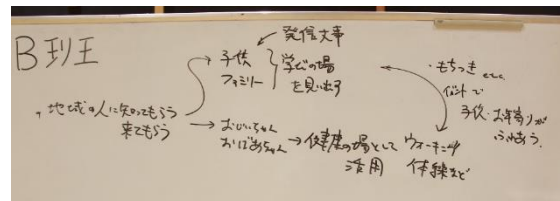 B班
発信文章
子供
ファミリー
学びの場
を見い出す
・地域の人に知ってもらう
来てもらう
おじいちゃん
おばあちゃん
→健康の場として
活用
ウォーキング
体操など
・もちつき etc.
イベントで
子供・お年寄りが
ふれあう。